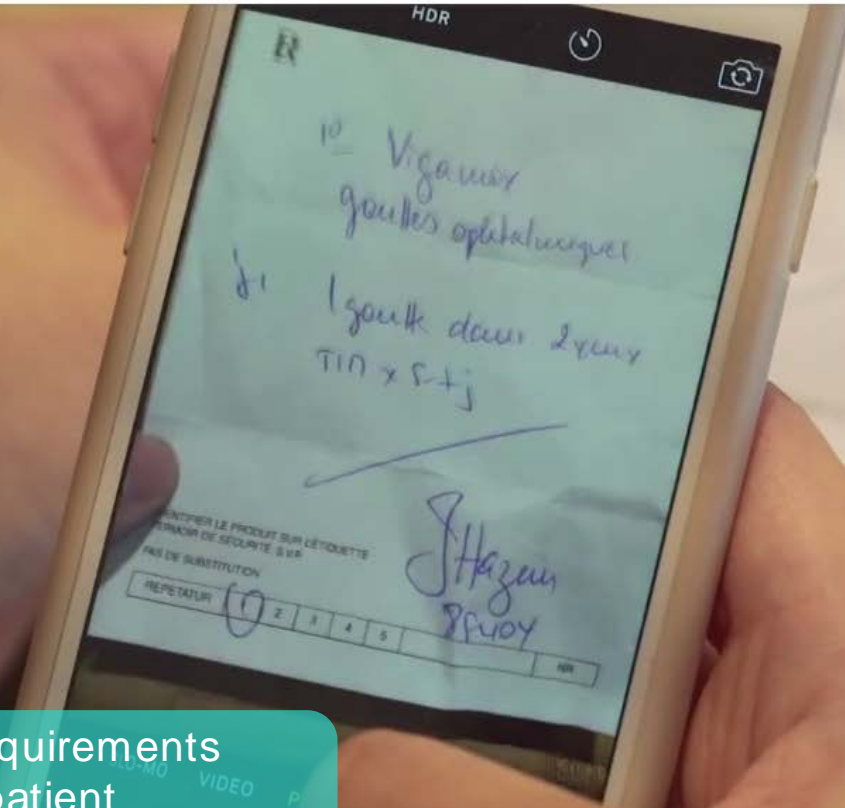 HDR
R
1º Vigamox
gouttes ophtalmiques
1 goutte dans 2 yeux
TID x
IDENTIFIER LE PRODUIT SUR L'ÉTIQUETTE
DE SÉCURITÉ S.V.P.
PAS DE SUBSTITUTION
REPETATUR 1 2 3 4 5 NR
Hazem
SLO-MO VIDEO P
quirements
patient